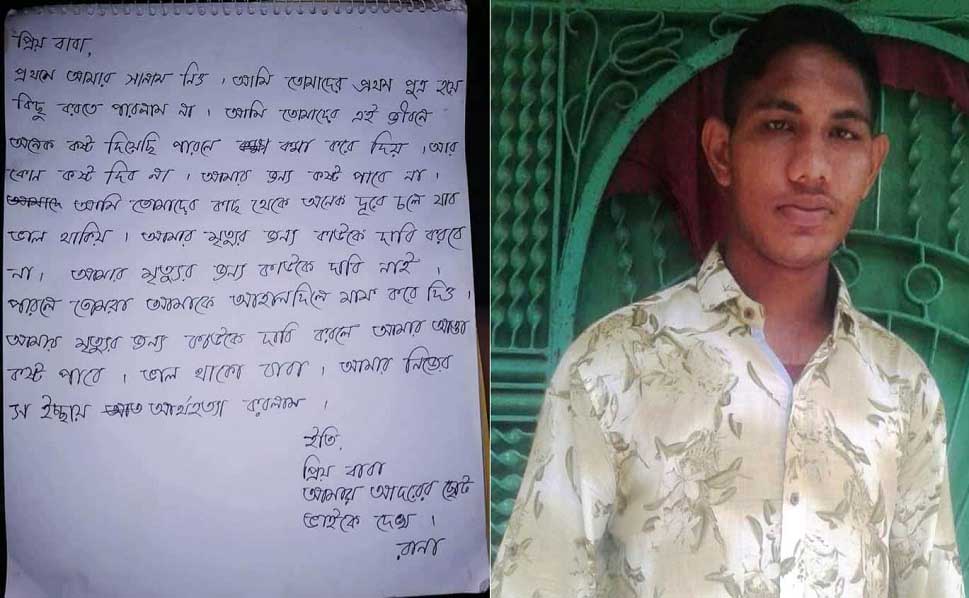 প্রিয় বাবা,
প্রথমে আমার সালাম নিও । আমি তোমাদের প্রথম পুত্র হয়ে
কিছু করতে পারলাম না । আমি তোমাদের এই জীবনে
অনেক কষ্ট দিয়েছি পারলে ক্ষমা করে দিয় । আর
কোন কষ্ট দিব না । আমার জন্য কষ্ট পাবে না ।
আমি তোমাদের কাছ থেকে অনেক দূরে চলে যাব
ভাল থাকিয় । আমার মৃত্যুর জন্য কাউকে দাবি করবে
না । আমার মৃত্যুর জন্য কাউকে দাবি নাই ।
পারলে তোমরা আমাকে মাফ করে দিও ।
আমার মৃত্যুর জন্য কাউকে দাবি করলে আমার আত্তা
কষ্ট পাবে । ভাল থাকো বাবা । আমার নিজের
স ইচ্ছায় আর্থহত্যা করলাম ।
ইতি,
প্রিয় বাবা
আমার আদরের ছোট
ভাইকে দেখ ।
রানা